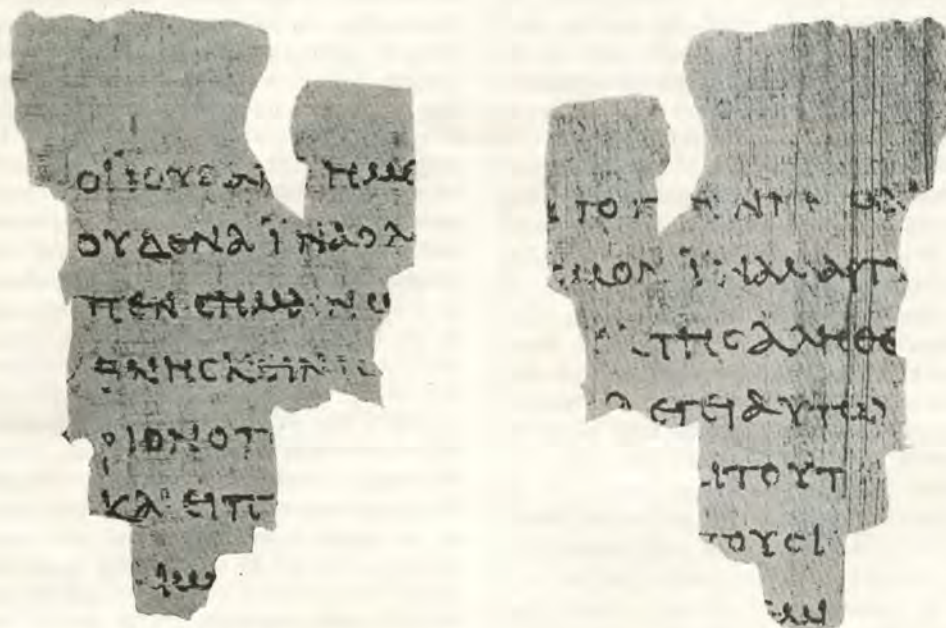 ΟΙ ΪΟΥΔΑΙ ΗΜΕ
ΟΥΔΕΝΑ ΪΝΑ Ο Λ
ΠΕΝ CΗΜΑΙΝΩ
ΘΝΗCΚΕΙΝ ΙC
ΡΙΟΝ Ο Π
ΚΑΙ ΕΙΠ
ΑΙΩ
ΤΟ Γ
CΜΟΝ ΪΝΑ ΜΑΡΤΥ
ΤΗC ΑΛΗΘΕ
ΛΕΓΕΙ ΑΥΤΩ
ΑΙ ΤΟΥΤ
ΤΟΥC Ι
ΕΜΙ